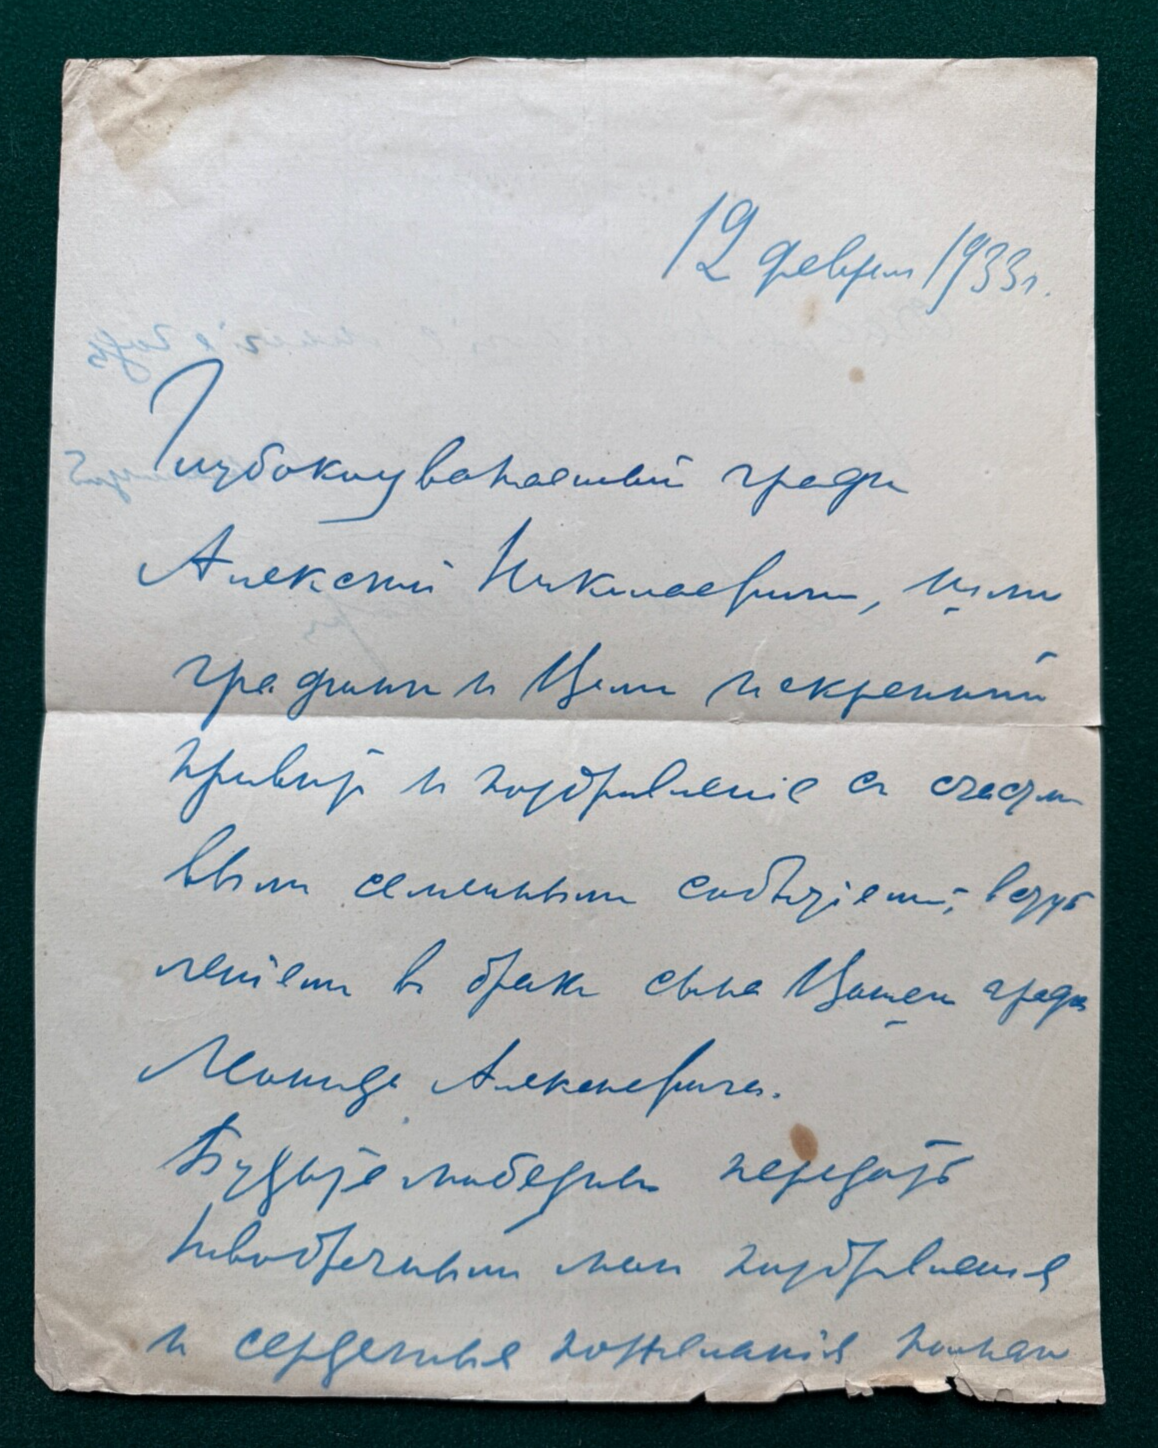 12 февраля 1933 г.
Глубокоуважаемый граф
Алексей Николаевич, шлю
графине и Вам искренний
привет и поздравление съ счастли
вымъ семейнымъ событіемъ, вступ
леніемъ въ бракъ сына Вашего графа
Леонида Алексеевича.
Будьте любезны передать
новобрачнымъ мои поздравленія
и сердечные пожеланія полнаго